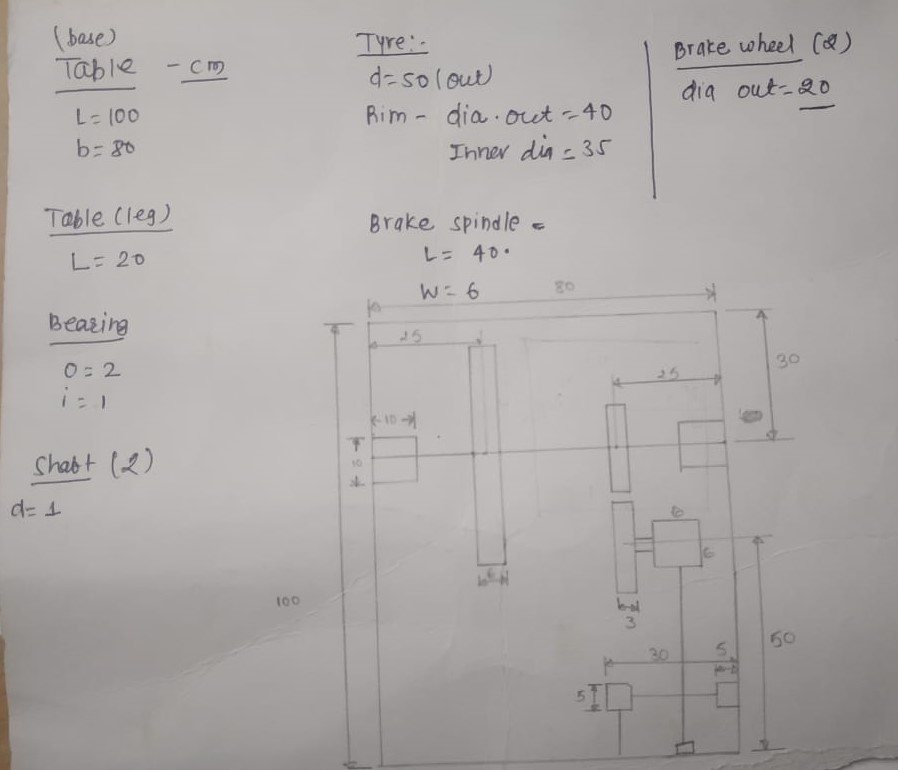 (base)
Table - cm
L = 100
b = 80
Table (leg)
L = 20
Bearing
O = 2
i = 1
Shabt (2)
d = 1
Tyre :-
d = 50 (out)
Rim - dia. out = 40
Inner dia = 35
Brake spindle =
L = 40.
W = 6
Brake wheel (2)
dia out = 20
80
25
30
25
10
10
6
6
6
100
3
50
30
5
5